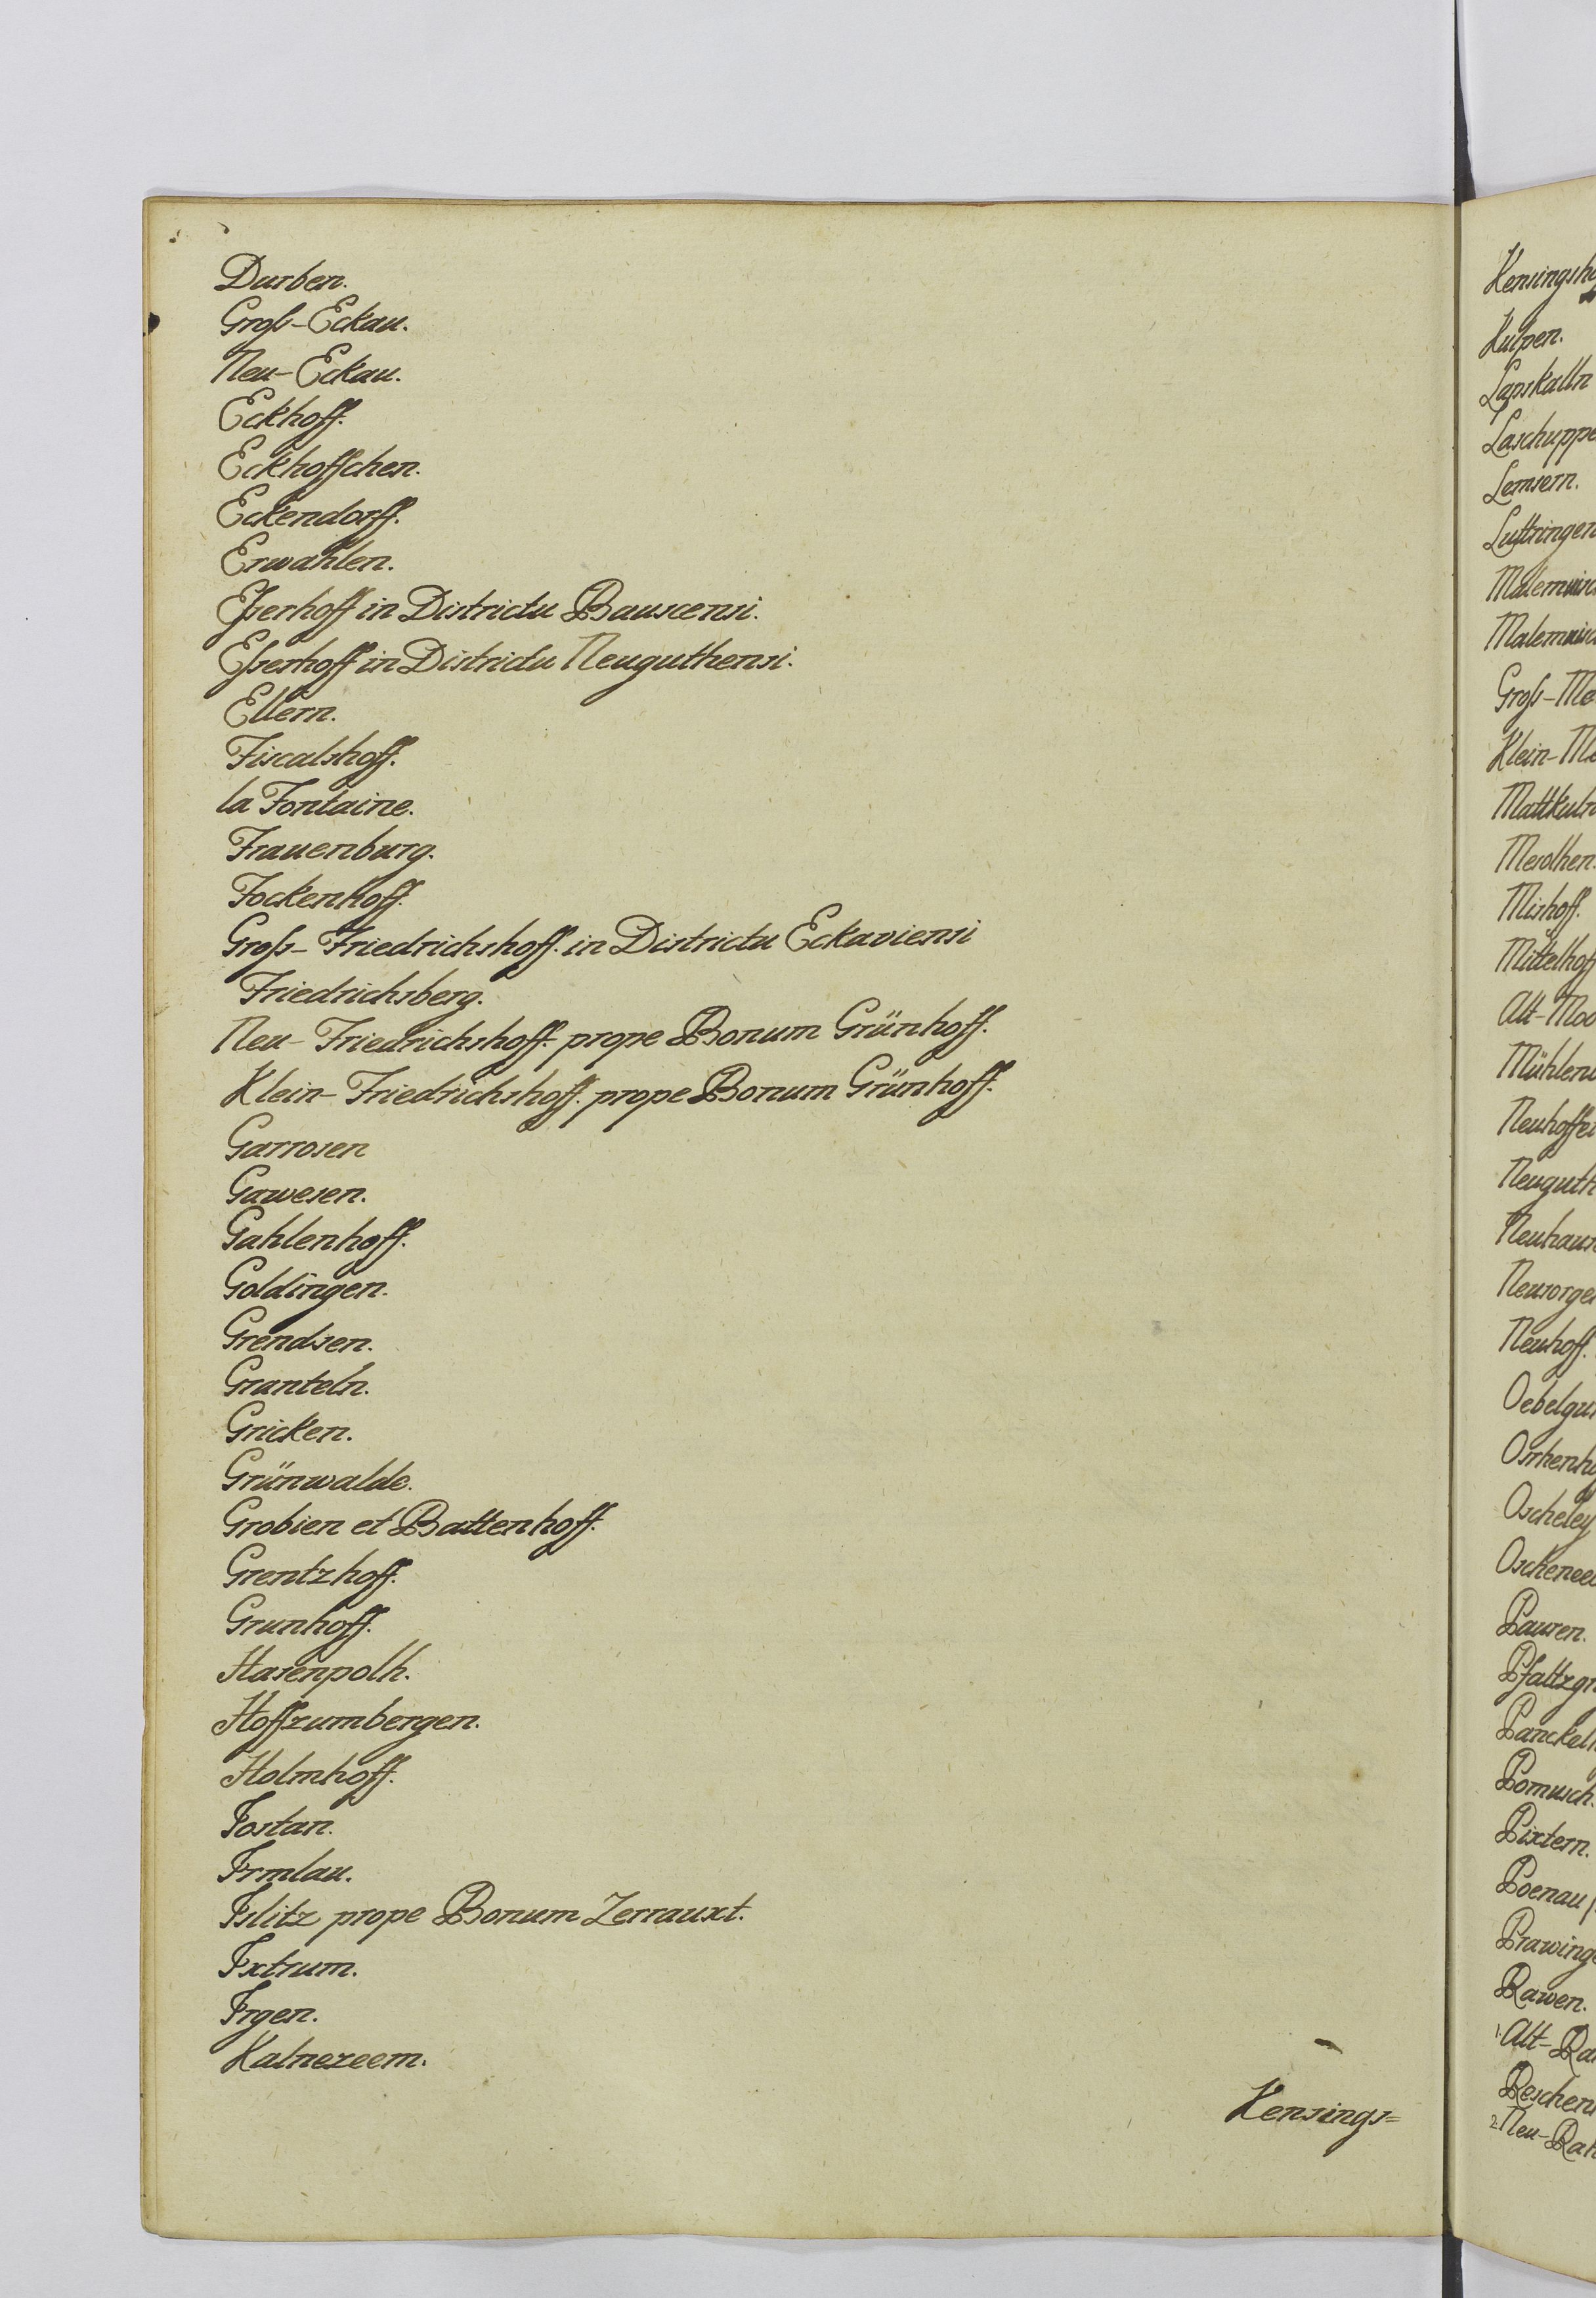 Durben.
Groß-Eckau.
Neu-Eckau.
Eckhoff.
Eckhoffchen.
Eckendorff.
Erwahlen.
Eßerhoff in Districtu Bauscensi.
Eßerhoff in Districtu Neuguthensi.
Ellern.
Fiscalshoff.
la Fontaine.
Frauenburg.
Fockenhoff.
Groß-Friedrichshoff. in Districtu Eckaviensi
Friedrichsberg.
Neu-Friedrichshoff. prope Bonum Grünhoff.
Klein-Friedrichshoff. prope Bonum Grünhoff.
Garrosen
Gawesen.
Gahlenhoff.
Goldingen.
Grendsen.
Granteln.
Gricken.
Grünwalde.
Grobien et Battenhoff.
Grentzhoff.
Grunhoff.
Hasenpoth.
Hoffzumbergen.
Holmhoff.
Jostan.
Irmlau.
Islitz prope Bonum Zerrauxt.
Ixtrum.
Irgen.
Kalnezeem.
Kensings=
Kensingsho
Kulpen.
Lapskalln
Laschuppe
Lemsern.
Luttringen
Groß-Me
Klein-Me
Mattkuln
Mesothen.
Mishoff.
Mittelhoff
Alt-Moc
Mühlen
Neuhoffe
Neuguth
Neuhaus
Neusorge
Neuhoff.
Oebelgu
Oscheley
Pausen.
Pfaltzgr
Panckel
Pomusch.
Pixtern.
Poenau
Prawing
Rawen.
1. Alt-Ra
Reschen
2. Neu-Rah